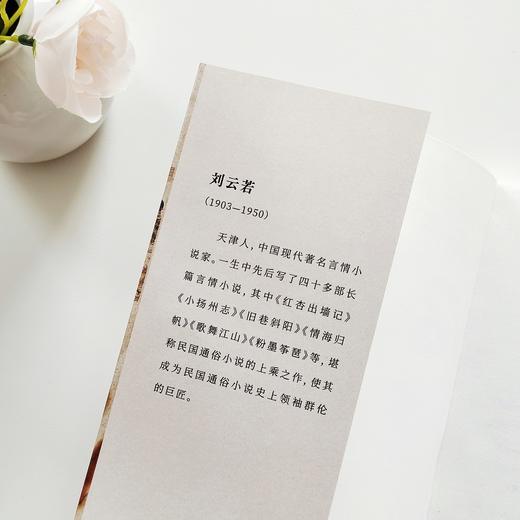 刘云若
（1903—1950）
天津人，中国现代著名言情小
说家。一生中先后写了四十多部长
篇言情小说，其中《红杏出墙记》
《小扬州志》《旧巷斜阳》《情海归
帆》《歌舞江山》《粉墨筝琶》等，堪
称民国通俗小说的上乘之作，使其
成为民国通俗小说史上领袖群伦
的巨匠。